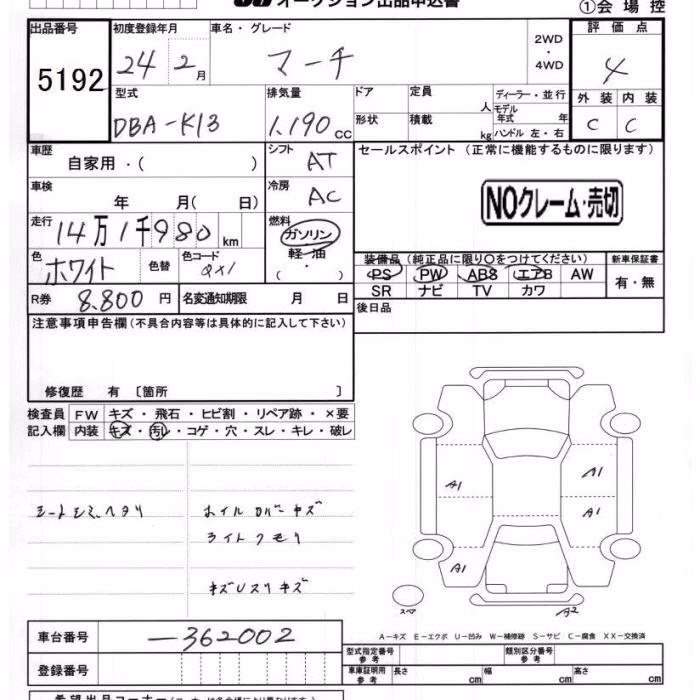 オークション出品申込書
①会場控
出品番号 初度登録年月 車名・グレード 2WD・4WD 評価点
5192 24 2月 マーチ 4
型式 排気量 ドア 定員 人 ディーラー・並行 外装 内装
DBA-K13 1.190cc 形状 積載 kg モデル年式 年 ハンドル 左・右 C C
車歴 自家用・( ) シフト AT セールスポイント (正常に機能するものに限ります)
車検 年 月( 日) 冷房 AC NOクレーム・売切
走行 14万1千980km 燃料 ガソリン 軽・油 ( ・ )
色 ホワイト 色替 色コード QX1 装備品 (純正品に限り○をつけてください) 新車保証書
PS PW ABS エアB AW 有・無
SR ナビ TV カワ
R券 8.800円 名変通知期限 月 日 後日品
注意事項申告欄(不具合内容等は具体的に記入して下さい)
修復歴 有 〔箇所 〕
検査員 FW キズ・飛石・ヒビ割・リペア跡・×要
記入欄 内装 キズ・汚レ・コゲ・穴・スレ・キレ・破レ
シートシミ、ヘタリ ホイルカバーキズ
ライトクモリ
キズUスリキズ
A1 A1
A1
A1
スペア A2
A-キズ E-エクボ U-凹み W-補修跡 S-サビ C-腐食 XX-交換済
車台番号 -362002
登録番号
型式指定番号 参考 類別区分番号 参考
車庫証明用 参考 長さ cm 幅 cm 高さ cm
希望出品コーナー